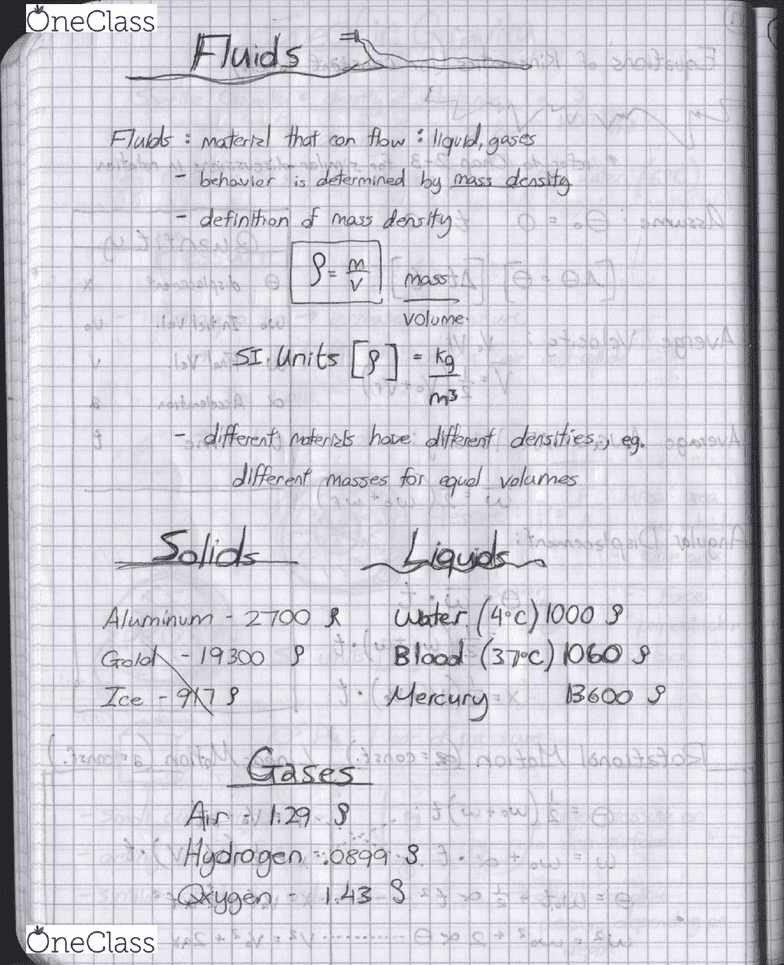 OneClass
Fluids
Fluids : material that can flow : liquid, gases
- behavior is determined by mass density
- definition of mass density
ρ = m/V mass/volume
SI. Units [ρ] = kg/m³
- different materials have different densities, eg.
different masses for equal volumes
Solids Liquids
Aluminum - 2700 ρ Water (4°C) 1000 ρ
Gold - 19300 ρ Blood (37°C) 1060 ρ
Ice - 917 ρ Mercury 13600 ρ
Gases
Air - 1.29 ρ
Hydrogen - .0899 ρ
Oxygen - 1.43 ρ
OneClass